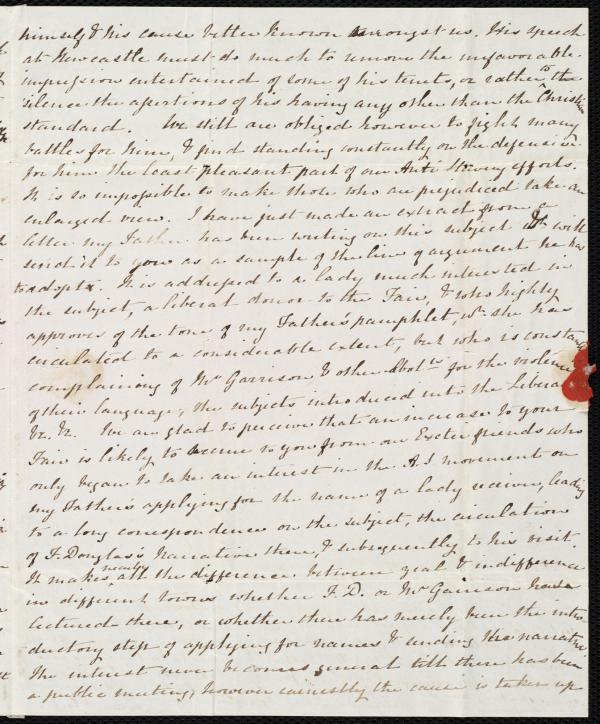 himself & his cause better known amongst us. His speech
at Newcastle must do much to remove the unfavorable
impression entertained of some of his tenets, or rather to
silence the assertions of his having any other than the Christian
standard. We still are obliged however to fight many
battles for him, & find standing constantly on the defensive
for him the least pleasant part of our Anti Slavery efforts.
It is so impossible to make those who are prejudiced take an
enlarged view. I have just made an extract from a
letter my Father has been writing on this subject & will
send it to you as a sample of the line of argument he has
to adopt. It is addressed to a lady much interested in
the subject, a liberal donor to the Fair, & who highly
approves of the tone of my Father's pamphlet, wh. she has
circulated to a considerable extent, but who is constantly
complaining of Mr Garrison & other Abolts for the violence
of their language, the subjects introduced into the Liberator
&c. &c. We are glad to perceive that an increase to your
Fair is likely to accrue to you from our Exeter friends who
only began to take an interest in the A.S movement on
my Father's applying for the name of a lady receiver, leading
to a long correspondence on the subject, the circulation
of F. Douglas's Narrative there, & subsequently to his visit
It makes nearly all the difference between zeal & indifference
in different towns whether F.D. or Mr Garrison have
lectured there, or whether there has merely been the intro
ductory step of applying for names & sending the narrative
The interest never becomes general till there has been
a public meeting, however earnestly the cause is taken up